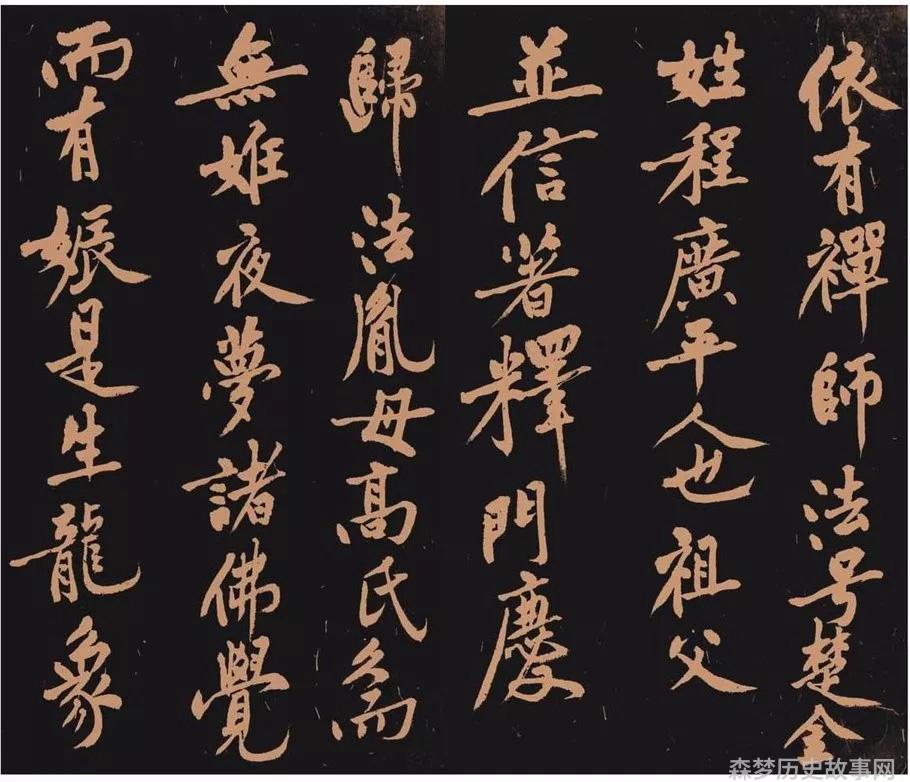 依有禪師法号楚金
姓程廣平人也祖父
並信著釋門慶
歸法胤母高氏久而
無姙夜夢諸佛覺
而有娠是生龍象
森梦历史故事网